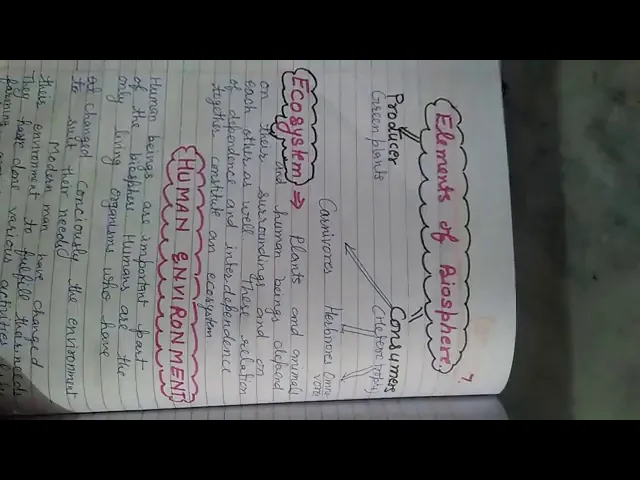 7
Elements of Biosphere
Producer Consumers
Green plants (Heterotroph)
Carnivores Herbivores Omni
vore
Ecosystem ⇒ Plants and animals
and human beings depend
on their surroundings and on
each other as well. These relation
of dependence and interdependence
together constitute an ecosystem
HUMAN ENVIRONMENT
Human beings are important part
of the biosphere. Humans are the
only living organisms who have
changed conciously the environment
to suit their needs
Modern man have changed
their environment to fulfill their needs
They have done various activities
farming